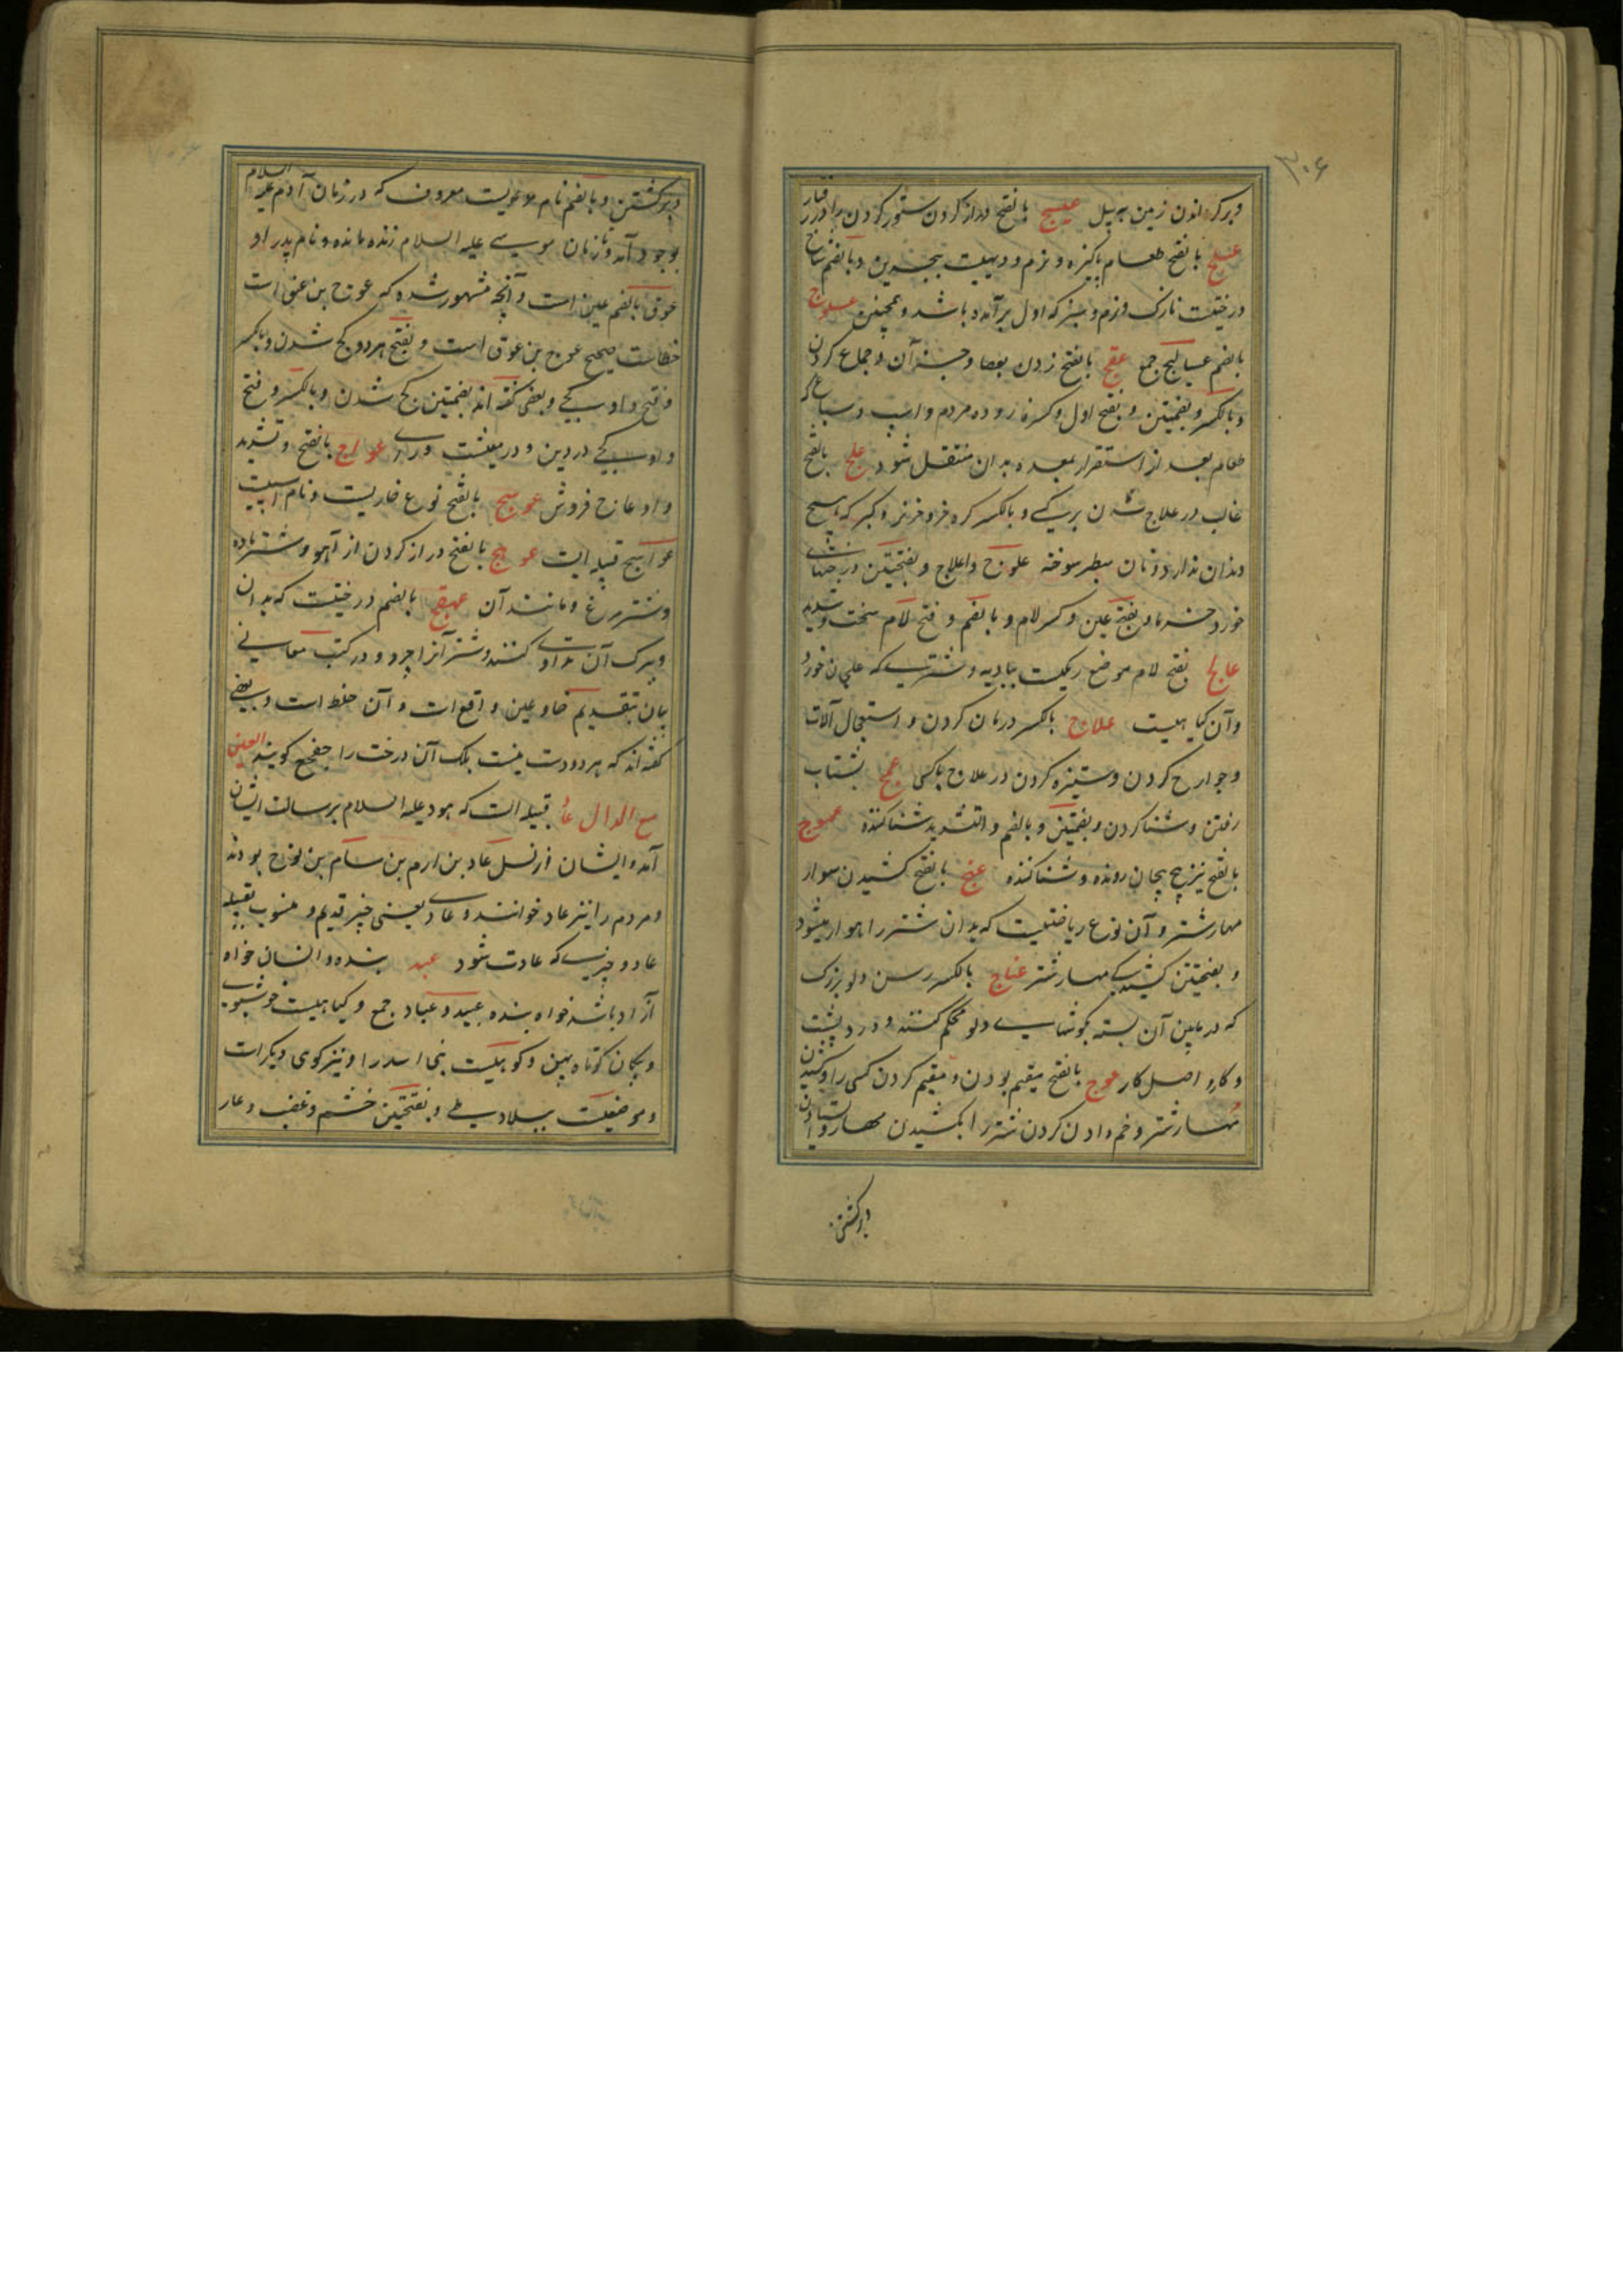 ۳۰۶
وبرکردانیدن زمین به بیل عسج بالفتح دراز کردن ستور کردن را در رفتار
عسلج بالفتح طعام پاکیزه و نرم و دهیست ببحرین و بالضم شاخ
درختیست نازک و نرم و سبز که اول برآمده باشد و همچنین عسلوج
بالضم عسالیج جمع عفج بالفتح زدن بعصا و جز آن و جماع کردن
و بالکسر و بفتحتین و بفتح اول و کسر فا روده مردم و اسپ و سباع که
طعام بعد از استقرار بمعده بدان منتقل شود علج بالفتح
غالب در علاج شدن بر یکی و بالکسر کره خر و خر نر و کبر که هیچ
دندان ندارد و نان سطبر سوخته علوج و اعلاج و بفتحتین درختهای
خورد خرما و بفتح عین و کسر لام و بالضم و فتح لام سخت و شدید
عالج بفتح لام موضع ریکست ببادیه و شتری که علجان خورد
وآن کیاهیست علاج بالکسر درمان کردن و استعمال آلات
و جوارح کردن و ستیزه کردن در علاج باکسی عمج بشتاب
رفتن و شنا کردن و بفتحتین و بالضم و التشدید شناکننده عموج
بالفتح نیز پیچ پیچان رونده و شناکننده عنج بالفتح کشیدن سوار
مهار شتر و آن نوع ریاضتیست که بدان شتر راهوار میشود
و بفتحتین کشیدکی مهار شتر عناج بالکسر رسن دلو بزرک
که در پایین آن بسته بکوشهای دلو محکم کنند و درد پشت
و کار و اصل کار عوج بالفتح مقیم بودن و مقیم کردن کسی را و کشیدن
مهار شتر و خم دادن کردن شتر را بکشیدن مهار و ایستادن
و برکشتن
و برکشتن و بالضم نام مردیست معروف که در زمان آدم علیه السلام
بوجود آمد و تا زمان موسی علیه السلام زنده مانده و نام پدر او
عوق بالضم عین است و آنچه مشهور شده که عوج بن عنق است
خطاست صحیح عوج بن عوق است و بفتح هر دو کج شدن و بالکسر
و فتح واو کجی و بعضی کفته اند بفتحتین کج شدن و بالکسر و فتح
واو کجی در دین و در معیشت و رای عواج بالفتح و تشدید
واو عاج فروش عوسج بالفتح نوع خاریست و نام اسپیست
عواسج قبیله ایست عوهج بالفتح دراز کردن از آهو و شتر ماده
و شترمرغ و مانند آن عهعج بالضم درختیست که بدان
و ببرک آن مداوی کنند و شتر آنرا چرد و در کتب معانی
بیان بتقدیم خا و عین واقع است و آن غلط است و بعضی
کفته اند که هر دو درست نیست بلک آن درخت را خعخع کویند العین
مع الدال عاد قبیله است که هود علیه السلام برسالت ایشان
آمد و ایشان از نسل عاد بن ارم بن سام بن نوح بودند
و مردم را نیز عاد خوانند و عادی یعنی چیز قدیم و منسوب بقبیله
عاد و چیزی که عادت شود عبد بنده و انسان خواه
آزاد باشد خواه بنده عبید و عباد جمع و کیاهیست خوشبوی
و پیکان کوتاه پهن و کوهیست بنی اسد را و نیز کوهی دیکر است
و موضعیست ببلاد طی و بفتحتین خشم و غضب و عار